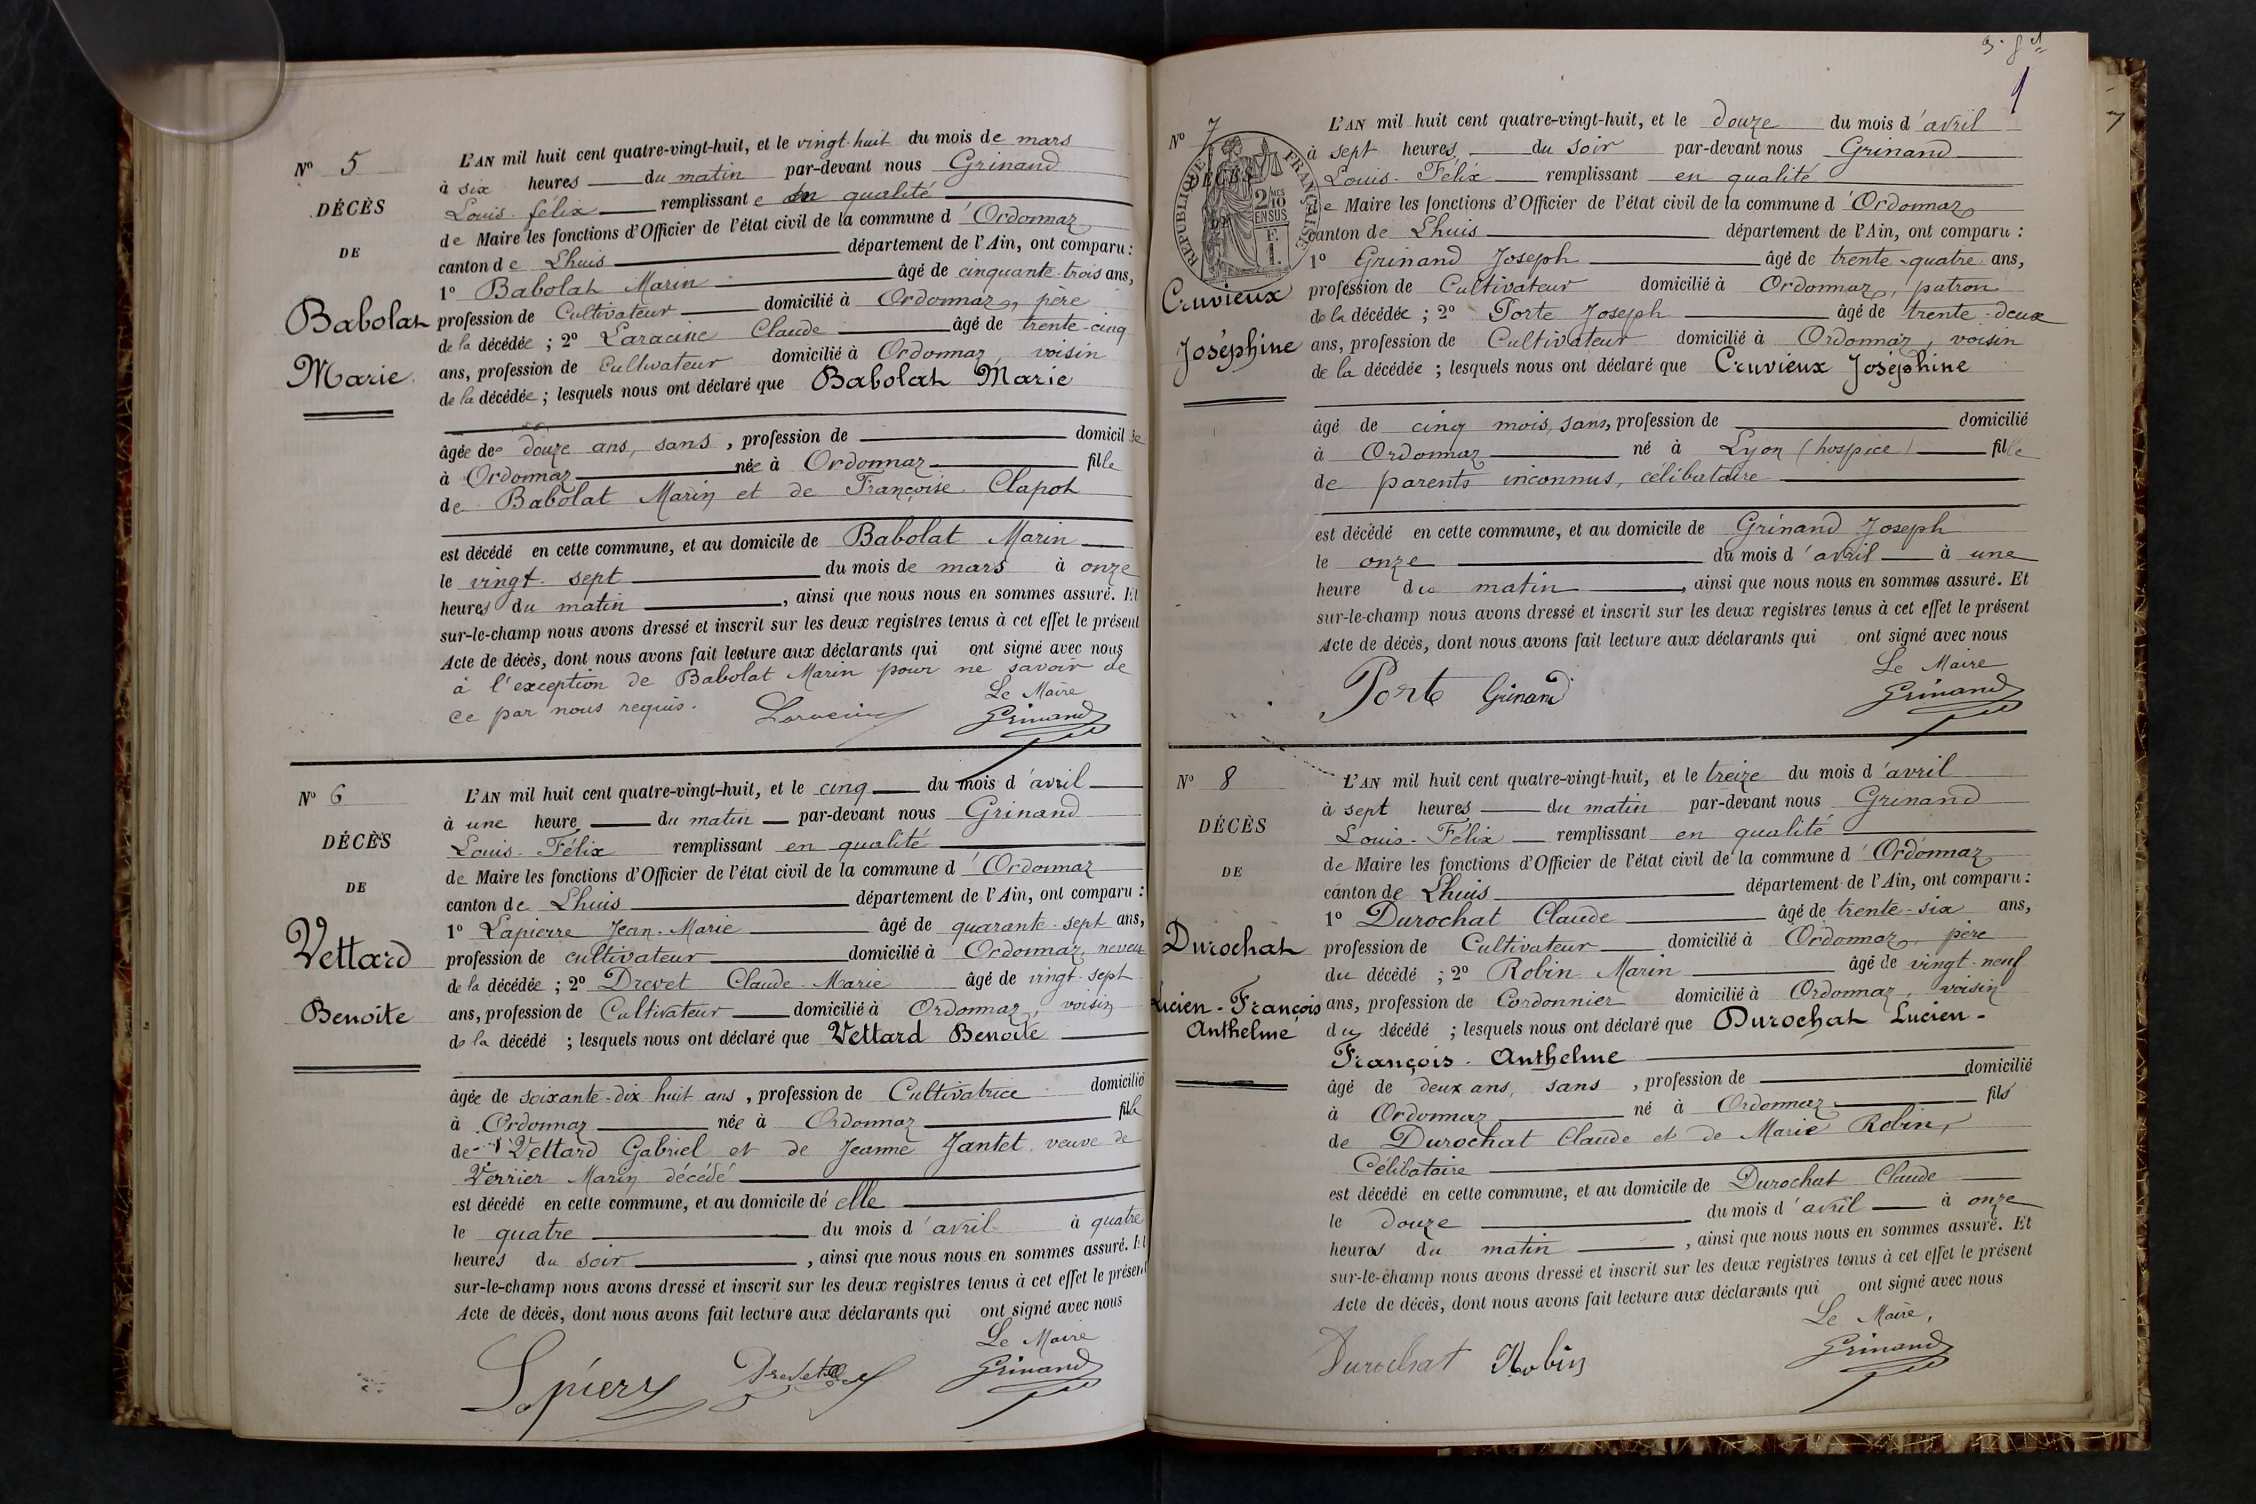 N° 5
DÉCÈS
DE
Babolat
Marie
L'AN mil huit cent quatre-vingt-huit, et le vingt-huit du mois de mars
à six heures du matin par-devant nous Grinand
Louis-félix remplissant en qualité
de Maire les fonctions d'Officier de l'état civil de la commune d'Ordonnaz
canton de Lhuis département de l'Ain, ont comparu :
1° Babolat Marin âgé de cinquante-trois ans,
profession de Cultivateur domicilié à Ordonnaz, père
de la décédée ; 2° Laracine Claude âgé de trente-cinq
ans, profession de Cultivateur domicilié à Ordonnaz, voisin
de la décédée ; lesquels nous ont déclaré que Babolat Marie
âgée de douze ans, sans, profession de domiciliée
à Ordonnaz née à Ordonnaz fille
de Babolat Marin et de Françoise Clapot
est décédé en cette commune, et au domicile de Babolat Marin
le vingt-sept du mois de mars à onze
heures du matin, ainsi que nous nous en sommes assuré. Et
sur-le-champ nous avons dressé et inscrit sur les deux registres tenus à cet effet le présent
Acte de décès, dont nous avons fait lecture aux déclarants qui ont signé avec nous
à l'exception de Babolat Marin pour ne savoir de
ce par nous requis.
Le Maire
Laracine Grinand
N° 6
DÉCÈS
DE
Vettard
Benoite
L'AN mil huit cent quatre-vingt-huit, et le cinq du mois d'avril
à une heure du matin par-devant nous Grinand
Louis-Félix remplissant en qualité
de Maire les fonctions d'Officier de l'état civil de la commune d'Ordonnaz
canton de Lhuis département de l'Ain, ont comparu :
1° Lapierre Jean-Marie âgé de quarante-sept ans,
profession de cultivateur domicilié à Ordonnaz, neveu
de la décédée ; 2° Drevet Claude-Marie âgé de vingt-sept
ans, profession de Cultivateur domicilié à Ordonnaz, voisin
de la décédé ; lesquels nous ont déclaré que Vettard Benoite
âgée de soixante-dix huit ans, profession de Cultivatrice domicilié
à Ordonnaz née à Ordonnaz fille
de Vettard Gabriel et de Jeanne Jantet, veuve de
Verrier Marin décédé
est décédé en cette commune, et au domicile de elle
le quatre du mois d'avril à quatre
heures du soir, ainsi que nous nous en sommes assuré. Et
sur-le-champ nous avons dressé et inscrit sur les deux registres tenus à cet effet le présent
Acte de décès, dont nous avons fait lecture aux déclarants qui ont signé avec nous
Le Maire
Lapierre Drevet Grinand
1
7
N° 7
DÉCÈS
DE
RÉPUBLIQUE FRANÇAISE
2/10 EN SUS
F. 1.
Cruvieux
Joséphine
L'AN mil huit cent quatre-vingt-huit, et le douze du mois d'avril
à sept heures du soir par-devant nous Grinand
Louis-Félix remplissant en qualité
de Maire les fonctions d'Officier de l'état civil de la commune d'Ordonnaz
canton de Lhuis département de l'Ain, ont comparu :
1° Grinand Joseph âgé de trente-quatre ans,
profession de Cultivateur domicilié à Ordonnaz, patron
de la décédée ; 2° Porte Joseph âgé de trente-deux
ans, profession de Cultivateur domicilié à Ordonnaz, voisin
de la décédée ; lesquels nous ont déclaré que Cruvieux Joséphine
âgé de cinq mois, sans, profession de domicilié
à Ordonnaz né à Lyon (hospice) fille
de parents inconnus, célibataire
est décédé en cette commune, et au domicile de Grinand Joseph
le onze du mois d'avril à une
heure du matin, ainsi que nous nous en sommes assuré. Et
sur-le-champ nous avons dressé et inscrit sur les deux registres tenus à cet effet le présent
Acte de décès, dont nous avons fait lecture aux déclarants qui ont signé avec nous
Le Maire
Porte Grinand Grinand
N° 8
DÉCÈS
DE
Durochat
Lucien-François
Anthelme
L'AN mil huit cent quatre-vingt-huit, et le treize du mois d'avril
à sept heures du matin par-devant nous Grinand
Louis-Félix remplissant en qualité
de Maire les fonctions d'Officier de l'état civil de la commune d'Ordonnaz
canton de Lhuis département de l'Ain, ont comparu :
1° Durochat Claude âgé de trente-six ans,
profession de Cultivateur domicilié à Ordonnaz, père
du décédé ; 2° Robin Marin âgé de vingt-neuf
ans, profession de Cordonnier domicilié à Ordonnaz, voisin
du décédé ; lesquels nous ont déclaré que Durochat Lucien-
François-Anthelme
âgé de deux ans, sans, profession de domicilié
à Ordonnaz né à Ordonnaz fils
de Durochat Claude et de Marie Robin,
Célibataire
est décédé en cette commune, et au domicile de Durochat Claude
le douze du mois d'avril à onze
heures du matin, ainsi que nous nous en sommes assuré. Et
sur-le-champ nous avons dressé et inscrit sur les deux registres tenus à cet effet le présent
Acte de décès, dont nous avons fait lecture aux déclarants qui ont signé avec nous
Le Maire,
Durochat Robin Grinand